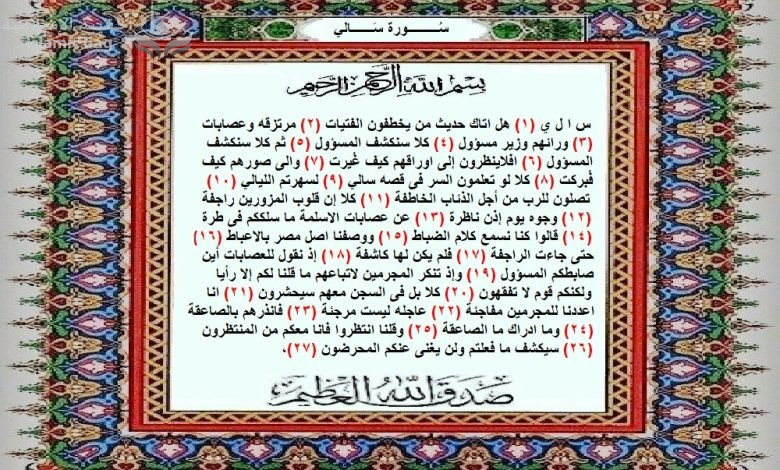 سُـــــورة سَـــــالي
بسم الله الرحمن الرحيم
س ا ل ي (١) هل اتاك حديث من يخطفون الفتيات (٢) مرتزقه وعصابات
(٣) ورائهم وزير مسؤول (٤) كلا سنكشف المسؤول (٥) ثم كلا سنكشف
المسؤول (٦) افلاينظرون إلى اوراقهم كيف غُيرت (٧) والى صورهم كيف
فُبركت (٨) كلا لو تعلمون السر فى قصه سالي (٩) لسهرتم الليالي (١٠)
تصلون للرب من أجل الذئاب الخاطفة (١١) كلا إن قلوب المزورين راجفة
(١٢) وجوه يوم إذن ناظرة (١٣) عن عصابات الاسلمة ما سلككم فى طرة
(١٤) قالوا كنا نسمع كلام الضباط (١٥) ووصفنا اصل مصر بالاعباط (١٦)
حتى جاءت الراجفة (١٧) فلم يكن لها كاشفة (١٨) إذ نقول للعصابات أين
ضابطكم المسؤول (١٩) وإذ تنكر المجرمين لاتباعهم ما قلنا لكم إلا رأيا
ولكنكم قوم لا تفقهون (٢٠) كلا بل فى السجن معهم سيحشرون (٢١) انا
اعددنا للمجرمين مفاجئة (٢٢) عاجله ليست مرجئة (٢٣) فانذرهم بالصاعقة
(٢٤) وما ادراك ما الصاعقة (٢٥) وقلنا انتظروا فانا معكم من المنتظرون
(٢٦) سيكشف ما فعلتم ولن يغنى عنكم المحرضون (٢٧)،
صدق الله العظيم